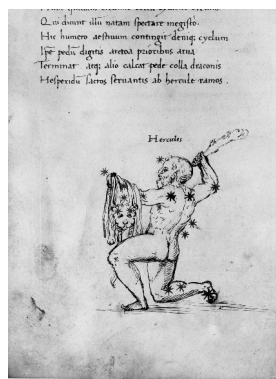 Qui dicunt illū natam spectare megisto.
Hic humero aestiuum contingit deniq; cyclum
Ipse pedū digitis arctoa prioribus arua
Terminat atq; alio calcat pede colla draconis
Hesperidū sacros seruantis ab hercule ramos.
Hercules